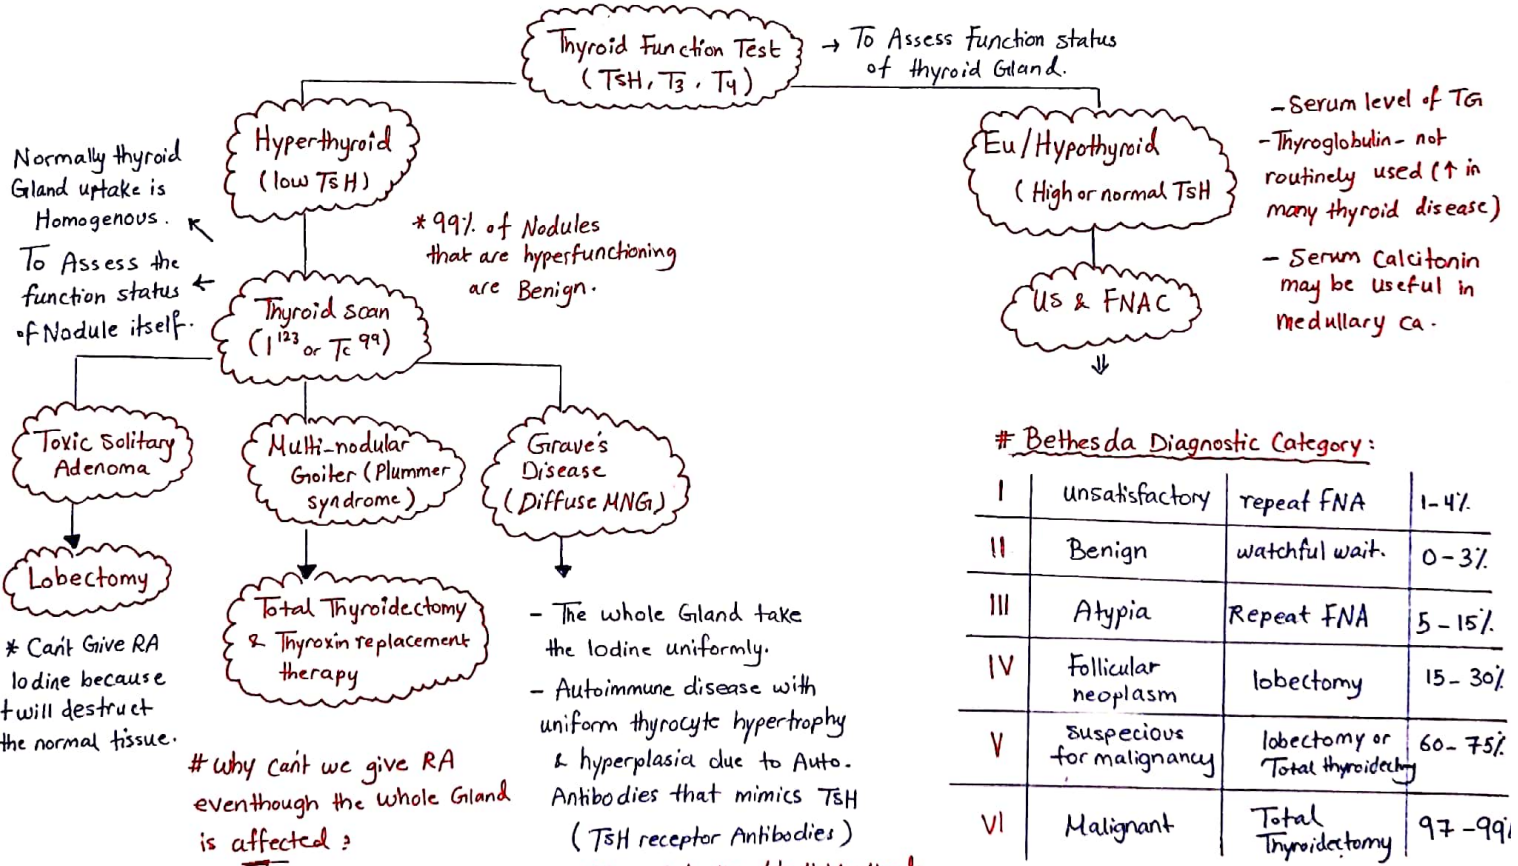 Thyroid Function Test
(TSH, T3, T4)
→ To Assess Function status
of thyroid Gland.
Hyperthyroid
(low TSH)
Normally thyroid
Gland uptake is
Homogenous.
To Assess the
function status
of Nodule itself.
* 99% of Nodules
that are hyperfunctioning
are Benign.
Thyroid scan
(I123 or Tc 99)
Toxic Solitary
Adenoma
Lobectomy
* Can't Give RA
Iodine because
twill destruct
the normal tissue.
Multi-nodular
Goiter (Plummer
syndrome)
Total Thyroidectomy
& Thyroxin replacement
therapy
# Why can't we give RA
eventhough the whole Gland
is affected?
Grave's
Disease
(Diffuse MNG)
- The whole Gland take
the Iodine uniformly.
- Autoimmune disease with
uniform thyrocyte hypertrophy
& hyperplasia due to Auto-
Antibodies that mimics TSH
(TSH receptor Antibodies)
Eu/Hypothyroid
(High or normal TSH
US & FNAC
- Serum level of TG
- Thyroglobulin - not
routinely used (↑ in
many thyroid disease)
- Serum Calcitonin
may be useful in
medullary ca.
# Bethesda Diagnostic Category:
I unsatisfactory repeat FNA 1-4%
II Benign watchful wait. 0-3%
III Atypia Repeat FNA 5-15%
IV Follicular neoplasm lobectomy 15-30%
V suspecious for malignancy lobectomy or Total thyroidectmy 60-75%
VI Malignant Total Thyroidectomy 97-99%